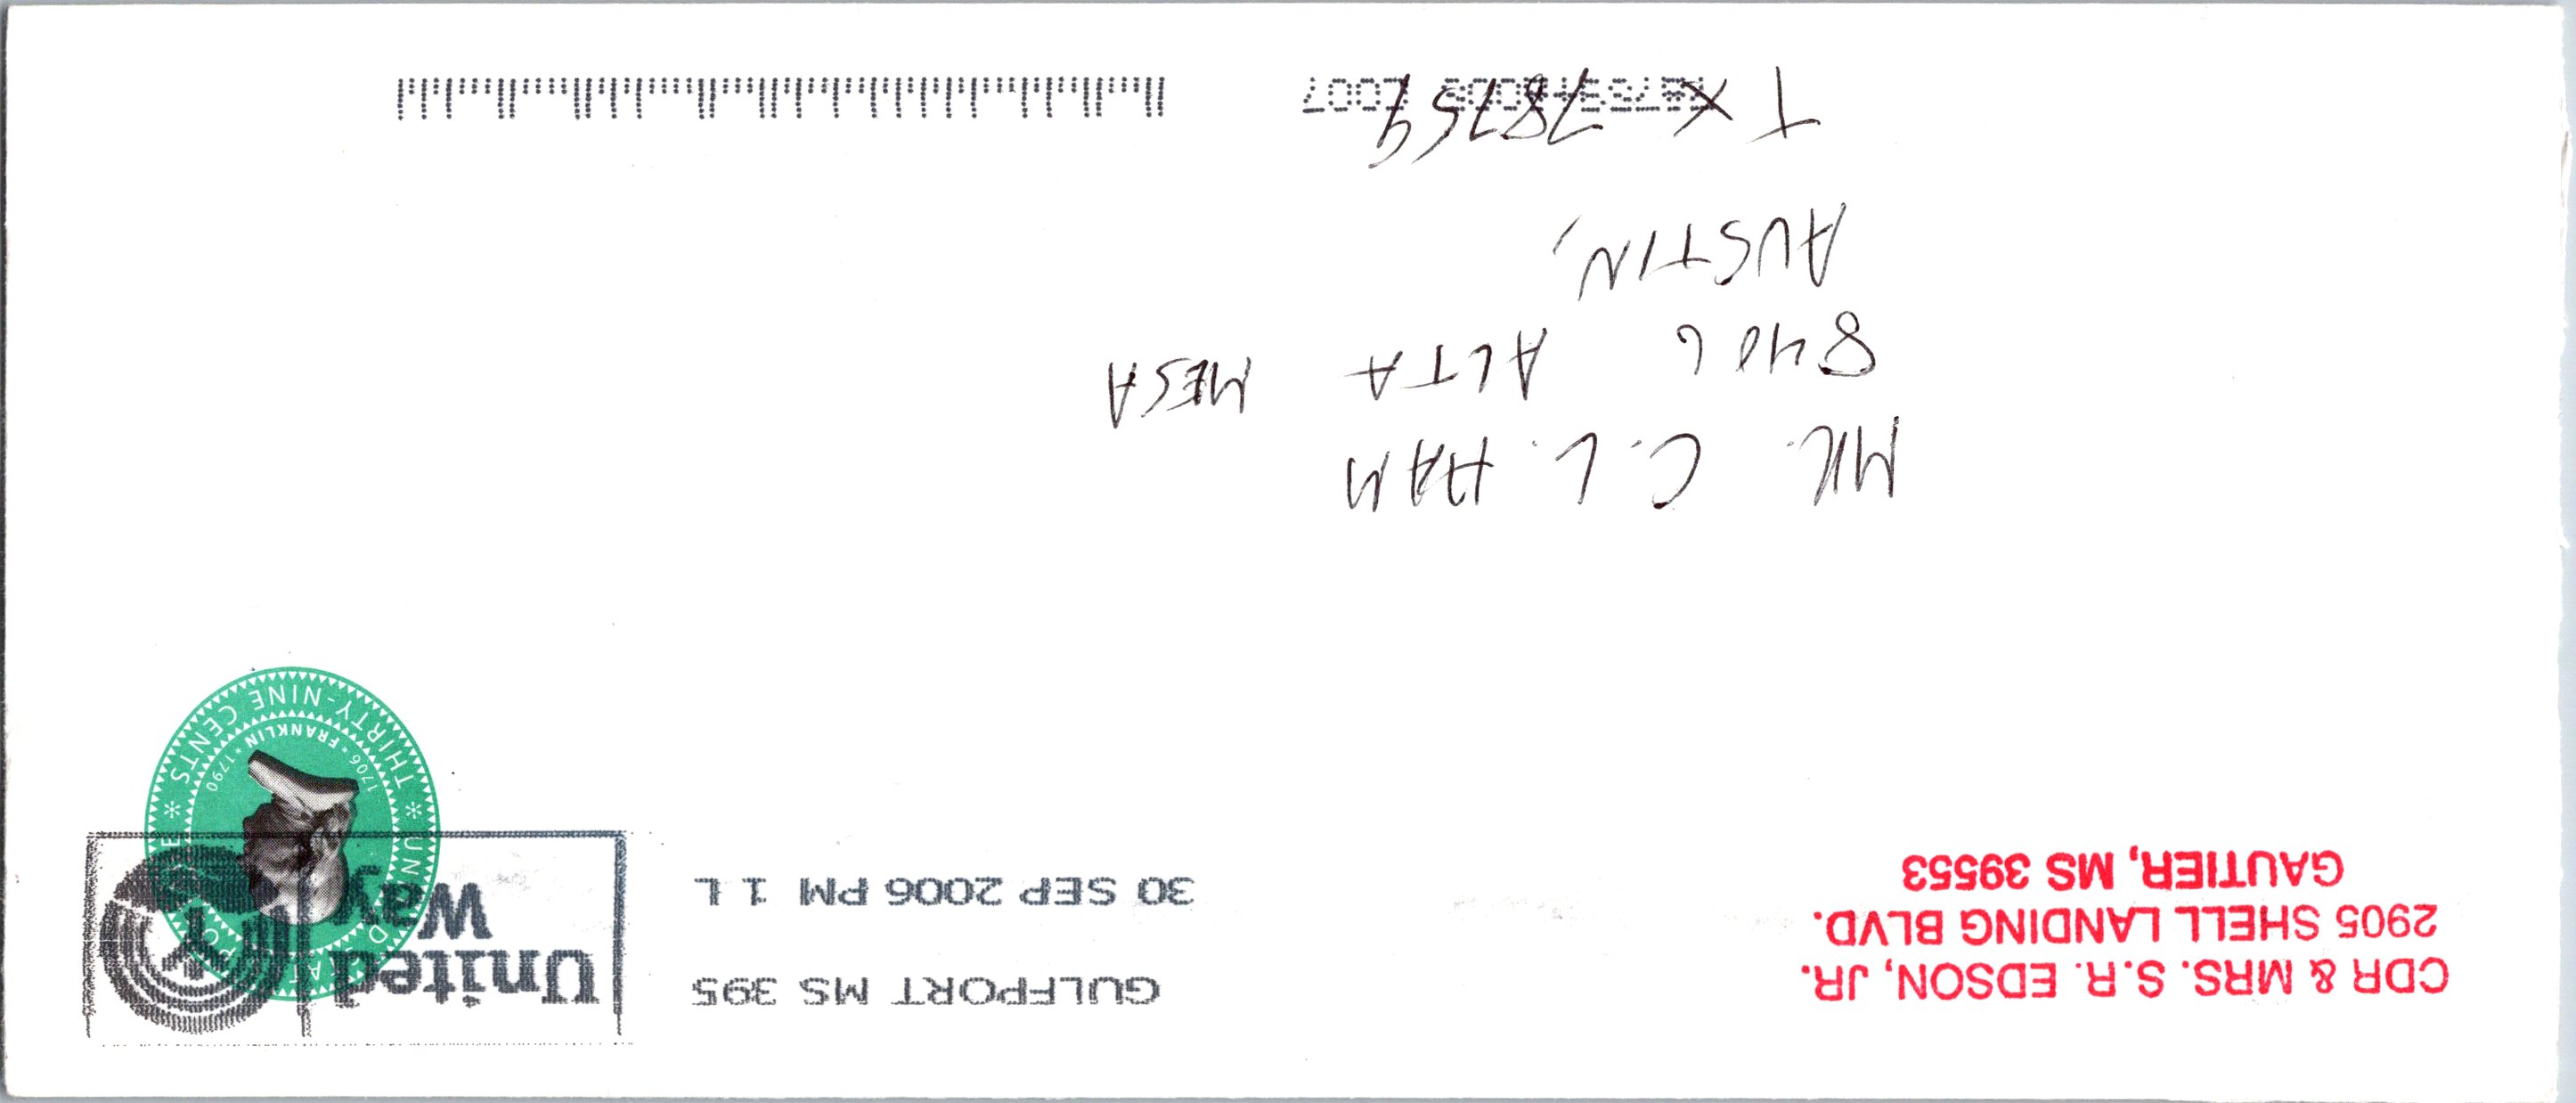 CDR & MRS. S.R. EDSON, JR.
2905 SHELL LANDING BLVD.
GAUTIER, MS 39553
GULFPORT MS 395
30 SEP 2006 PM 1 L
United
Way
UNITED STATES POSTAGE * THIRTY-NINE CENTS *
1706 * FRANKLIN * 1790
MR. C. L. HAM
8406 ALTA MESA
AUSTIN,
TX 78759